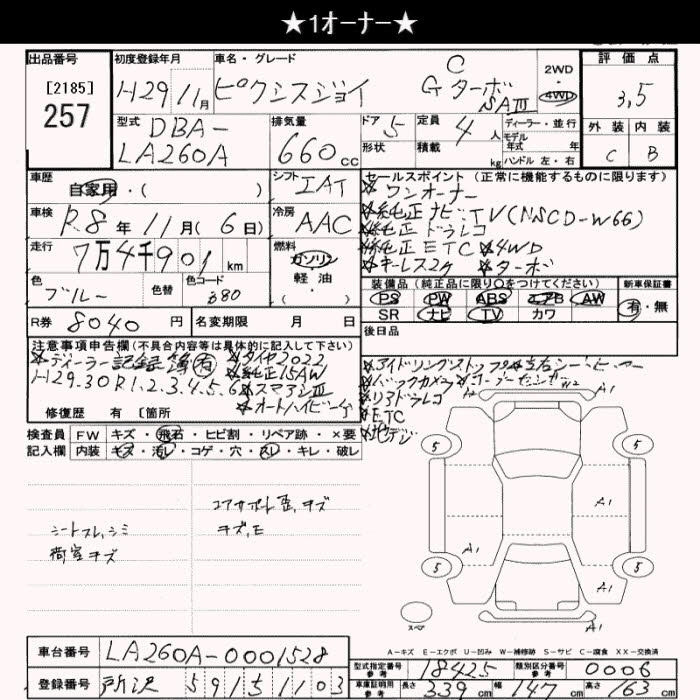 ★1ｵｰﾅｰ★
出品番号
[2185]
257
初度登録年月
H29年11月
車名・グレード
ピクシスジョイ
C
Gターボ
SAⅢ
2WD
・
4WD
評価点
3,5
外装 内装
C B
型式
DBA-
LA260A
排気量
660cc
ドア 5
形状
定員 4人
積載 kg
ディーラー・並行
モデル
年式 年
ハンドル 左・右
車歴
自家用・( )
シフト
IAT
車検
R.8年11月(6日)
冷房
AAC
走行
7万4千901km
燃料
ガソリン
軽油
色
ブルー
色替
色コード
B80
R券 8040円
名変期限 月 日
セールスポイント (正常に機能するものに限ります)
★ワンオーナー
★純正ナビ・TV(NSCD-W66)
★純正ドラレコ
★純正ETC ★4WD
★キーレス2ケ ★ターボ
装備品 (純正品に限り○をつけてください)
PS PW ABS エアB AW
SR ナビ TV カワ
新車保証書
有・無
後日品
注意事項申告欄(不具合内容等は具体的に記入して下さい)
★ディーラー記録簿有 ★タイヤ2022
H29.30 R1.2.3.4.5.6 ★純正15AW
★スマアシⅢ
★オートハイビーム
修復歴 有 [箇所
★アイドリングストップ ★左右シートヒーター
★バックカメラ ★コーナーセンサー
★リアドラレコ
★ETC
★地デジ
検査員
記入欄
FW キズ・飛石・ヒビ割・リペア跡・×要
内装 キズ・汚レ・コゲ・穴・スレ・キレ・破レ
シートスレ,シミ
荷室キズ
コアサポート歪,キズ
キズ,E
A2
W2
A1
5
5
A1
A1
A1
5
5
A1
スペア
A－キズ E－エクボ U－凹み W－補修跡 S－サビ C－腐食 XX－交換済
車台番号 LA260A-0001528
登録番号 所沢 591 す 1103
型式指定番号
参考
18425
類別区分番号
参考
0006
車庫証明用
参考
長さ 339cm 幅 147cm 高さ 163cm